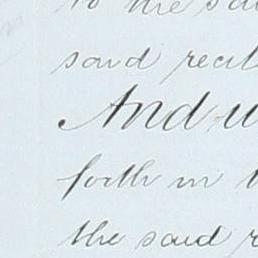 to the said
said recit
And w
forth in t
the said r